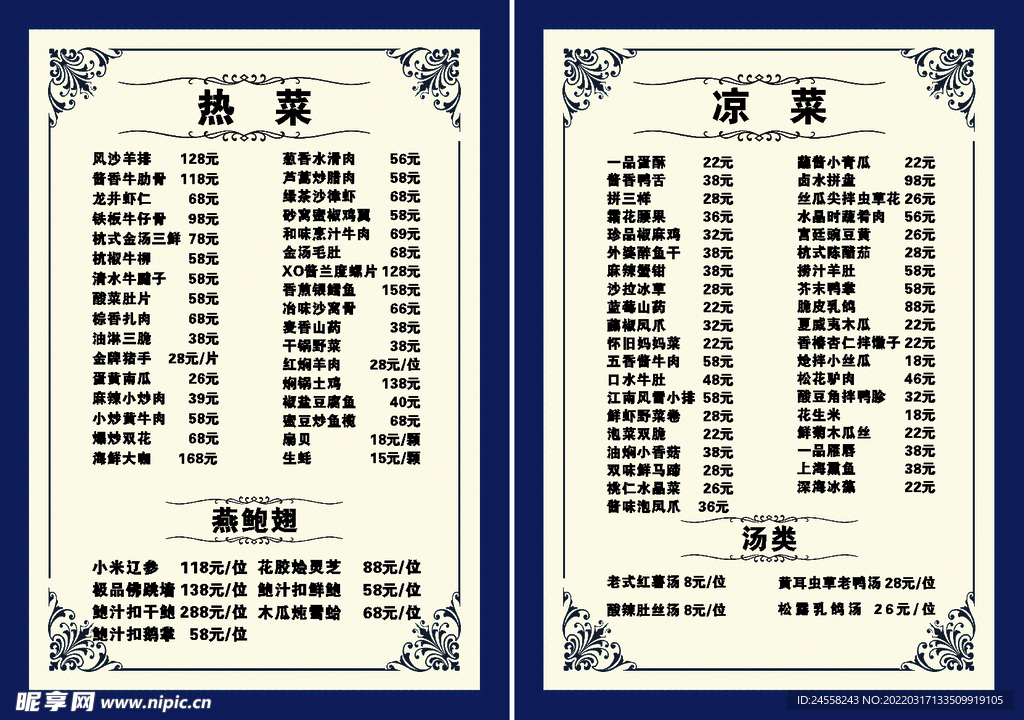 热 菜
风沙羊排 128元
酱香牛肋骨 118元
龙井虾仁 68元
铁板牛仔骨 98元
杭式金汤三鲜 78元
杭椒牛柳 58元
清水牛腱子 58元
酸菜肚片 58元
棕香扎肉 68元
油淋三脆 38元
金牌猪手 28元/片
蛋黄南瓜 26元
麻辣小炒肉 39元
小炒黄牛肉 58元
爆炒双花 68元
海鲜大咖 168元
葱香水滑肉 56元
芦蒿炒腊肉 58元
绿茶沙律虾 68元
砂窝蜜椒鸡翼 58元
和味烹汁牛肉 69元
金汤毛肚 68元
XO酱兰度螺片 128元
香煎银鳕鱼 158元
冶味沙窝骨 66元
麦香山药 38元
干锅野菜 38元
红焖羊肉 28元/位
焖锅土鸡 138元
椒盐豆腐鱼 40元
蜜豆炒鱼榄 68元
扇贝 18元/颗
生蚝 15元/颗
燕鲍翅
小米辽参 118元/位 花胶烩灵芝 88元/位
极品佛跳墙 138元/位 鲍汁扣鲜鲍 58元/位
鲍汁扣干鲍 288元/位 木瓜炖雪蛤 68元/位
鲍汁扣鹅掌 58元/位
凉 菜
一品蛋酥 22元
酱香鸭舌 38元
拼三样 28元
霜花腰果 36元
珍品椒麻鸡 32元
外婆醉鱼干 38元
麻辣蟹钳 38元
沙拉冰草 28元
蓝莓山药 22元
藤椒凤爪 32元
怀旧妈妈菜 22元
五香酱牛肉 58元
口水牛肚 48元
江南风雪小排 58元
鲜虾野菜卷 28元
泡菜双脆 22元
油焖小香菇 38元
双味鲜马蹄 28元
桃仁水晶菜 26元
酱味泡凤爪 36元
蘸酱小青瓜 22元
卤水拼盘 98元
丝瓜尖拌虫草花 26元
水晶时蔬肴肉 56元
宫廷豌豆黄 26元
杭式陈醋茄 28元
捞汁羊肚 58元
芥末鸭掌 58元
脆皮乳鸽 88元
夏威夷木瓜 22元
香椿杏仁拌馓子 22元
炝拌小丝瓜 18元
松花驴肉 46元
酸豆角拌鸭胗 32元
花生米 18元
鲜菊木瓜丝 22元
一品雁唇 38元
上海熏鱼 38元
深海冰藻 22元
汤类
老式红薯汤 8元/位 黄耳虫草老鸭汤 28元/位
酸辣肚丝汤 8元/位 松露乳鸽汤 26元/位
昵享网 www.nipic.cn
ID:24558243 NO:20220317133509919105